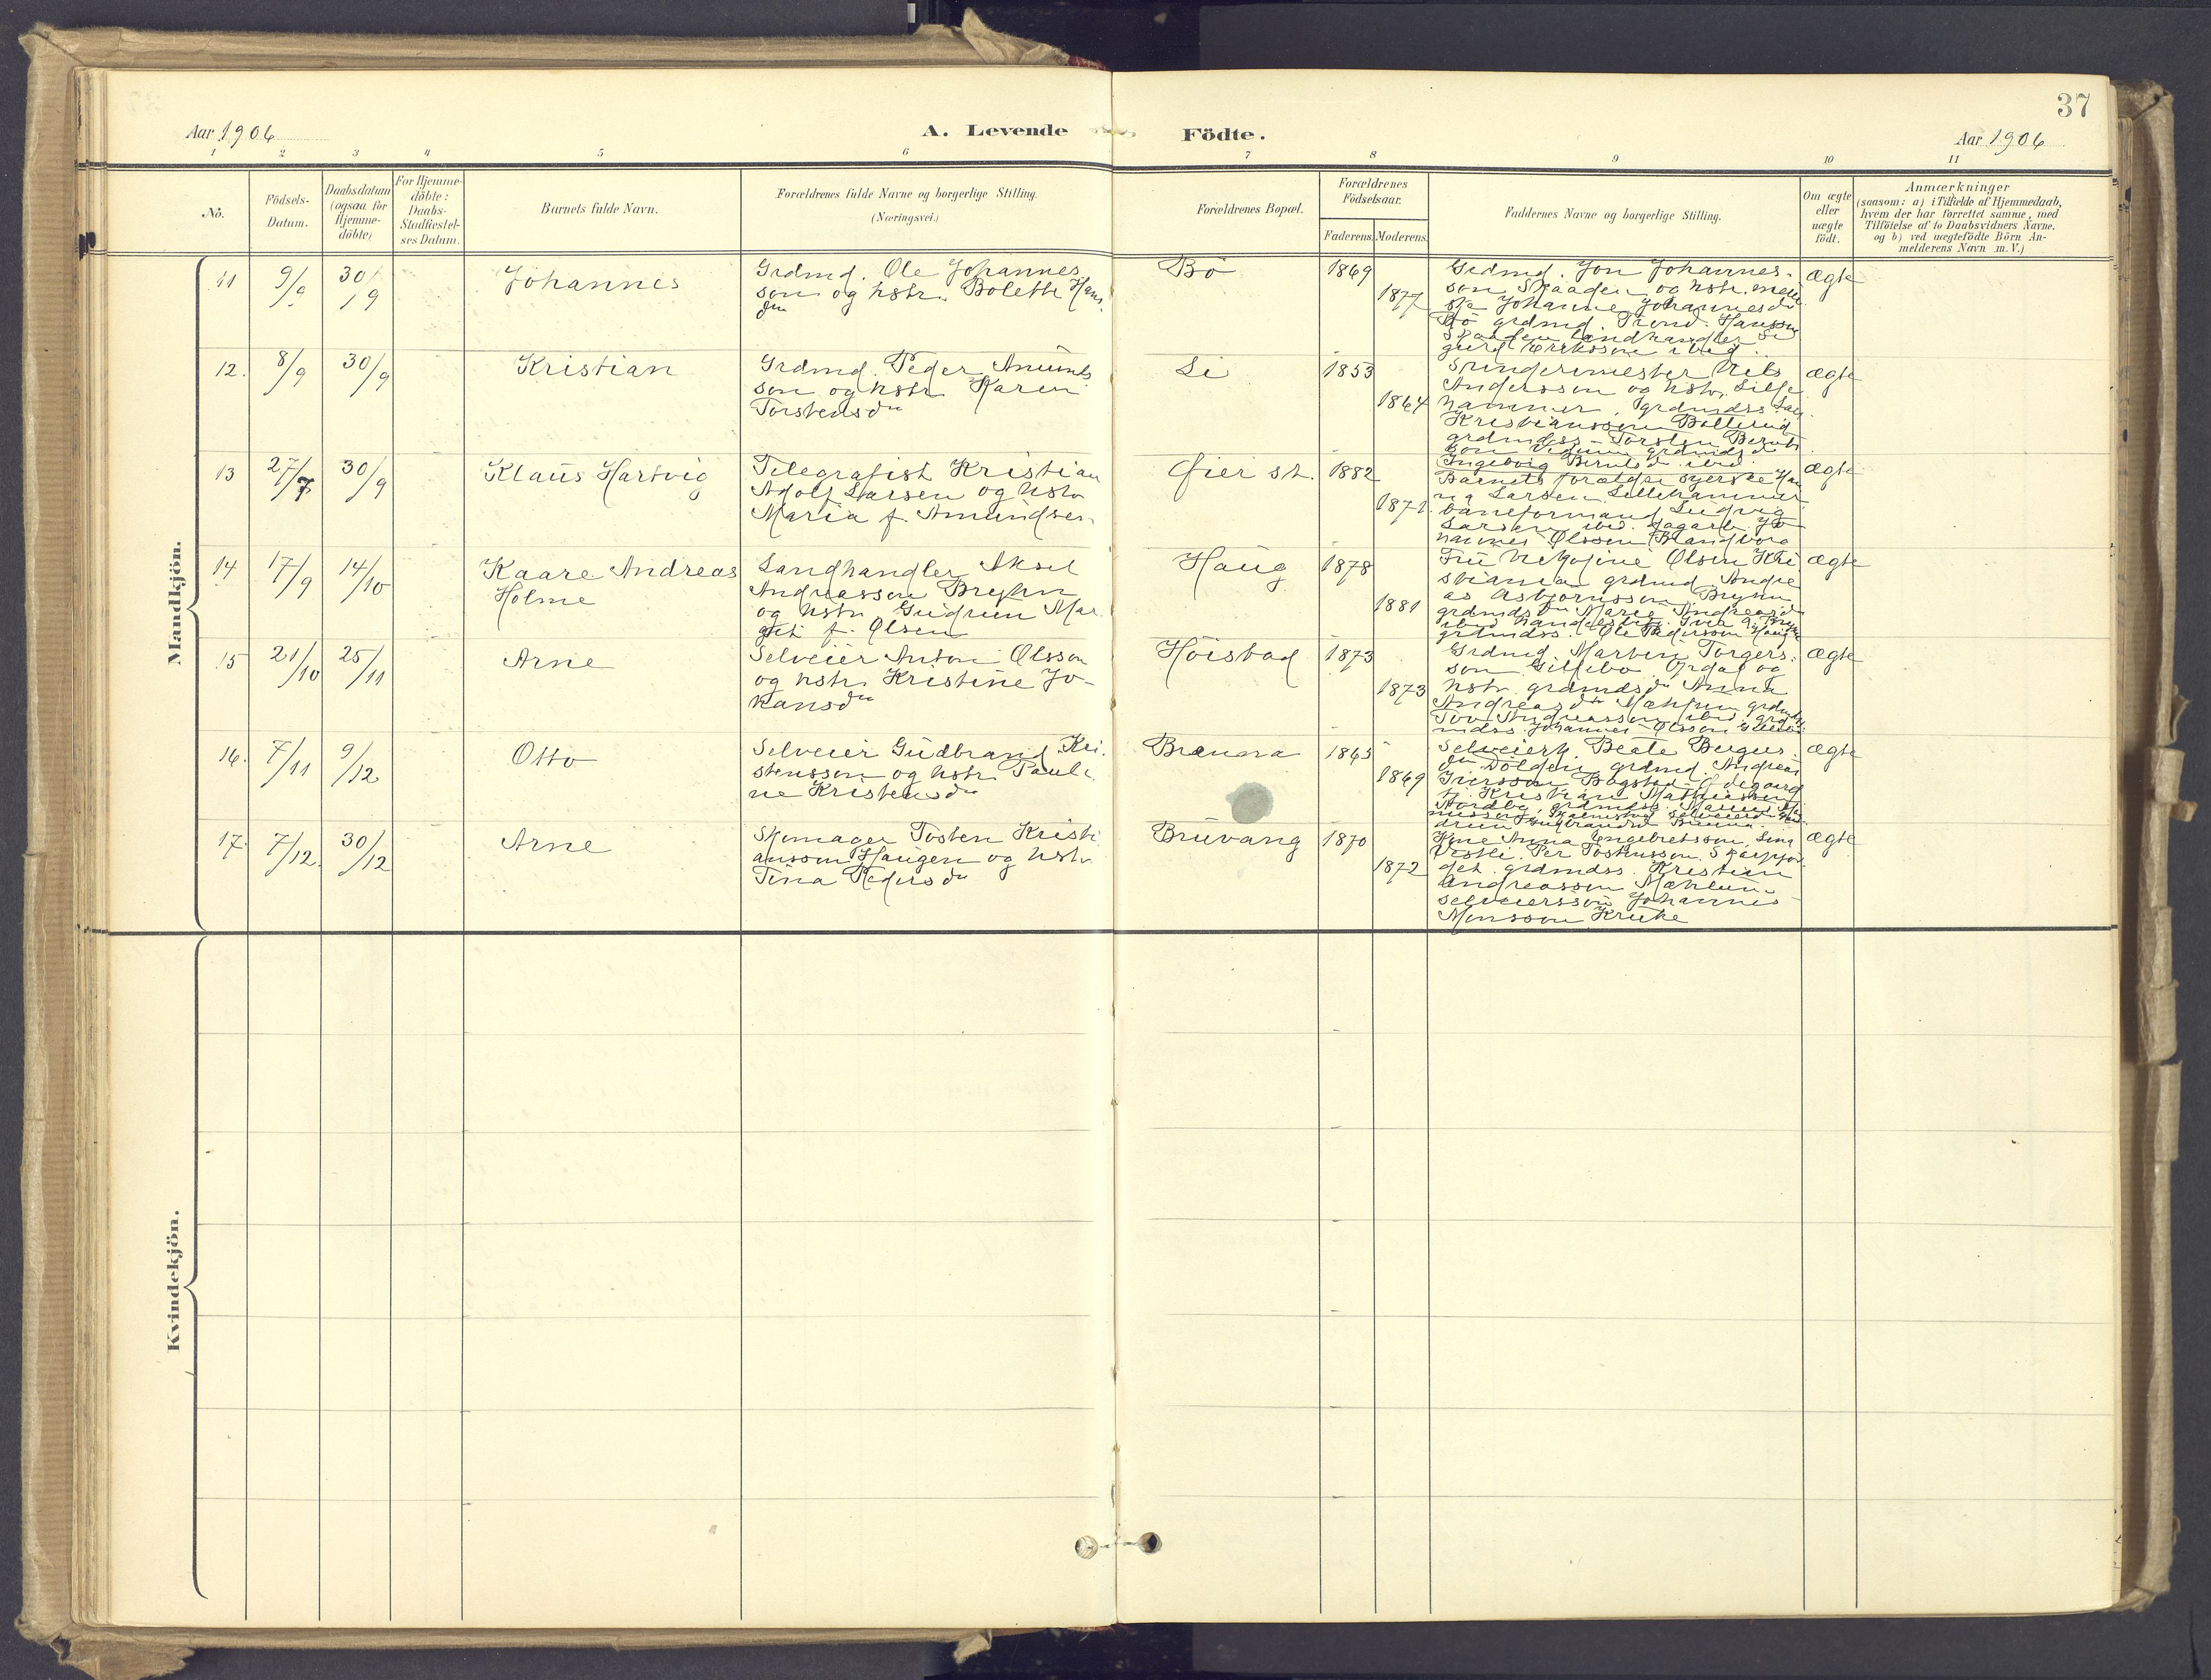 37
Aar 1906
A. Levende
Födte.
Aar 1906
1 2 3 4 5 6 7 8 9 10 11
No.
Födsels-
Datum.
Daabsdatum
(ogsaa for
Hjemme-
döbte)
For Hjemme-
döbte:
Daabs-
Stadfæstel-
ses Datum.
Barnets fulde Navn.
Forældrenes fulde Navne og borgerlige Stilling.
(Næringsvei.)
Forældrenes Bopæl.
Forældrenes
Födselsaar.
Faderens.
Moderens.
Faddernes Navne og borgerlige Stilling.
Om ægte
eller
uægte
födt.
Anmærkninger
(saasom: a) i Tilfælde af Hjemmedaab,
hvem der har forrettet samme, med
Tilföielse af to Daabsvidners Navne.
og b) ved uægtefödte Börn An-
melderens Navn m. V.)
Mandkjön.
11
9/9
30/9
Johannes
Grdmd. Ole Johannes
son og hstr. Bolette Hans
dtr
Bö
1869
1877
Grdmd. Jon Johannes-
son Skaaden og hstr.
Johanne Johannesdr
Bö grdmd. Trond Hansson
Skaaden landhandler Si
gurd Erikssen ibid.
ægte
12.
8/9
30/9
Kristian
Grdmd. Peder Amund
son og hstr Karen
Torstensdtr
Li
1853
1864
Andersson og hstr. Lille
hammer, grdmdss
Kristiansson
grdmdss - Torsten Bernt
son grdmdsdr
Ingeborg Berntsdr ibid.
ægte
13
27/7
30/9
Klaus Hartvig
Telegrafist Kristian
Adolf Larsen og hstr
Maria f. Amundsen
Öier st.
1882
1871.
Barnets forældre syerske Han
na Larsen Lillehammer
baneformand Ludvig
Larsen ibid. Jo
hannes Olsson
ægte
14
17/9
14/10
Kaare Andreas
Holme
Landhandler Aksel
Andreassen Bryhn
og hstr Gudrun Mar
git f. Olsen
Haug
1878
1881
Fru Olsen Kri
stiania grdmd. Andre
as Asbjörnsson Bryhn
grdmdsdtr Marie Andreasdr
ibid
grdmdss. Ole Pedersson Haug
ægte
15
21/10
25/11
Arne
Selveier Anton Olsson
og hstr. Kristine Jo-
hansdtr
Höistad
1873
1873
Grdmd. Martin Torgers-
son Gillebo og
hstr. grdmdsdtr Anna
Andreasdtr Mæhlum grdmdss.
Tov Andreasson ibid grd
mdss Johannes Olsson
ægte
16.
7/11
9/12
Otto
Selveier Gudbrand Kri-
stensson og hstr. Pauli-
ne Kristensdtr
Brænna
1865
1869
Selveierk. Beate
dtr grdmd. Andreas
Iversson Bogstu
Kristian Mathiassen
Nordbo, grdmdss.
ægte
17.
7/12.
30/12
Arne
Skomager Tosten Kristi
ansson Haugen og hstr.
Tina Pedersdtr
Bruvang
1870
1872
Kone Anna Engebretsson,
Vestli. Per Tostensson,
grdmdss. Kristian
Andreasson Mæhlum -
selveierssön Johannes
Monsson Kruke
ægte
Kvindekjön.